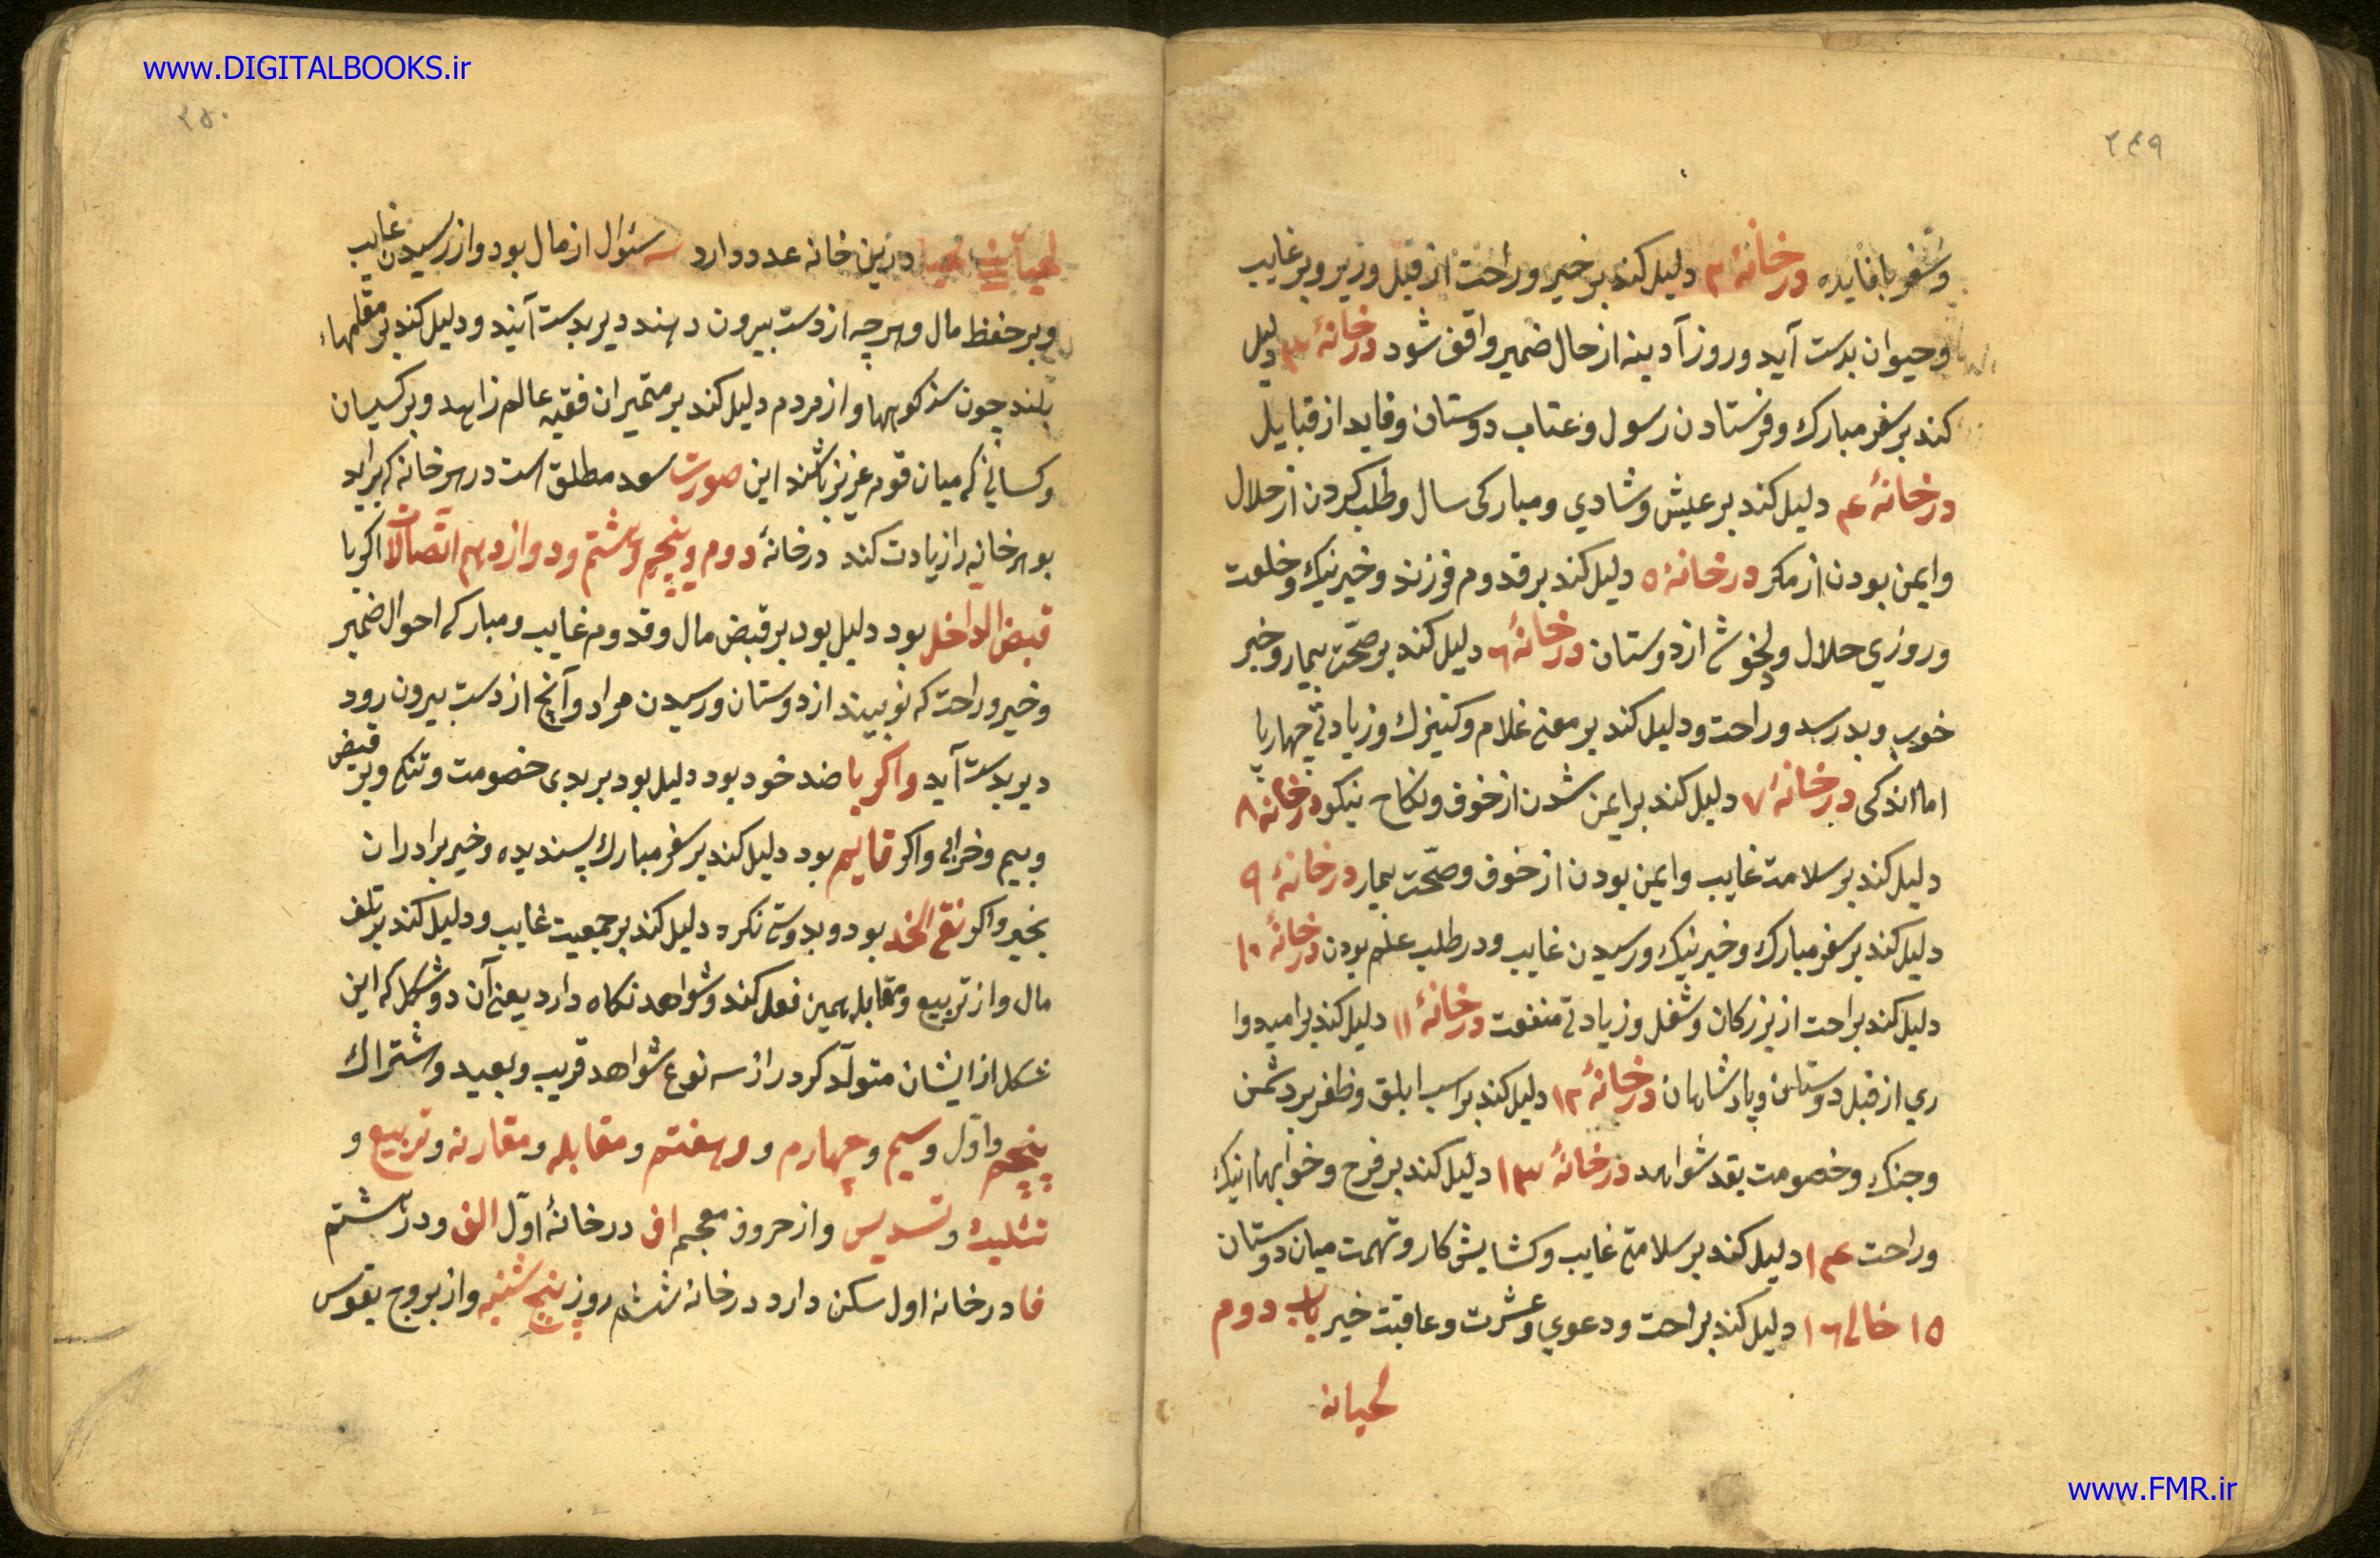 www.DIGITALBOOKS.ir
۲۴۹
وسفر با فایده در خانهٔ ۲ دلیل کند بر خیر و راحت از قبل وزیر و بر غایب
و حیوان بدست آید و روز آدینه از حال ضمیر واقف شود در خانهٔ ۳ دلیل
کند بر سفر مبارک و فرستادن رسول و عتاب دوستان و فاید از قبایل
در خانهٔ ۴ دلیل کند بر عیش و شادي و مبارکی سال و طلب کردن از حلال
وایمن بودن از مکر در خانهٔ ۵ دلیل کند بر قدوم فرزند و خیر نیک و خلعت
وروزي حلال و دلخوشی از دوستان در خانهٔ ۶ دلیل کند بر صحّت بیمار و خبر
خوب و بد رسد و راحت و دلیل کند بر معنی غلام و کنیزک و زیادتی چهارپا
اما اندکی در خانهٔ ۷ دلیل کند بر ایمن شدن از خوف و نکاح نیکو در خانهٔ ۸
دلیل کند بر سلامت غایب و ایمن بودن از خوف و صحّت بیمار در خانهٔ ۹
دلیل کند بر سفر مبارک و خیر نیک و رسیدن غایب و در طلب علم بودن در خانهٔ ۱۰
دلیل کند براحت از بزرکان و شغل و زیادتی منفعت در خانهٔ ۱۱ دلیل کند بر امیدوا
ري از قبل دوستان و پادشاهان در خانهٔ ۱۲ دلیل کند بر اسب ابلق و ظفر بر دشمن
و جنک و خصومت بقد شواهد در خانهٔ ۱۳ دلیل کند بر فرح و خوابهاء نیک
وراحت ۱۴ دلیل کند بر سلامتی غایب و کشایش کار و تهمت میان دوستان
۱۵ خالی ۱۶ دلیل کند براحت و دعوي و عشرت و عاقبت خیر باب دوم
لحیانه
۲۵۰
لحیان در این خانه عدد دارد سه سئوال از مال بود و از رسیدن غایب
و بر حفظ مال و هرچه از دست بیرون دهند دیر بدست آیند و دلیل کند بر مقامهاء
بلند چون سنذ کوهها و از مردم دلیل کند بر متمیزان فقیه عالم زاهد و بر کسیان
و کسانی که میان قوم عزیز باشند این صورت سعد مطلق است در هر خانه که براید
بو هر خانه را زیادت کند در خانهٔ دوم و پنجم و هشتم و دوازدهم اتصالات اکر با
قبض الداخل بود دلیل بود بر قبض مال و قدوم غایب و مبارکی احوال ضمیر
و خیر و راحت که نو بیند از دوستان و رسیدن مراد و آنچ از دست بیرون رود
دیر بدست آید و اکر با ضد خود بود دلیل بود بر بدی خصومت و تنکی و بر قبض
وبیم و خرابی و اکر قایم بود دلیل کند بر سفر مبارک پسندیده و خیر برادران
بخیر و اکر نقی الخد بود و بدوستی نکرد دلیل کند بر جمعیت غایب و دلیل کند بر تلف
مال و از تربیع و مقابله همین فعل کند و شواهد نکاه دارد یعنی آن دو شکل که این
شکل از ایشان متولّد کردد از سه نوع شواهد قریب و بعید و شتراک
پنجم و اوّل و سیم و چهارم و و هفتم و مقابله و مقارنه و تربیع و
تثلیث و تسدیس و از حروف معجم اف در خانهٔ اوّل الف و در هشتم
فا در خانه اول سکن دارد در خانه ششم روز پنج شنبه و از بروج بقوس
www.FMR.ir